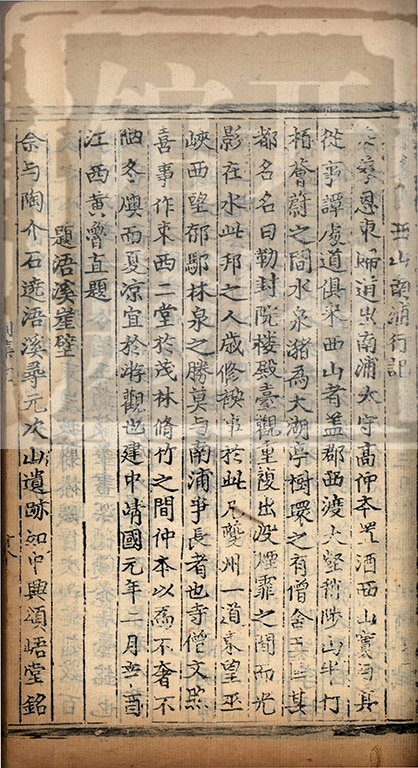 西山南浦行記
蒙恩東歸道出南浦太守高仲本置酒西山實与其
從事譚處道俱來西山者盖郡西渡大壑稍陟山半竹
栢薈蔚之間水泉猪為大湖亭榭環之有僧舍五其
都名名曰勒封院樓殿臺觀重複出没煙霏之間而光
影在水此邦之人歳修禊事於此凡夔州一道東望巫
峽西望郁鄢林泉之勝莫与南浦爭長者也寺僧文照
喜事作東西二堂於茂林脩竹之間仲本以為不奢不
陋冬燠而夏凉宜於游觀也建中靖國元年二月辛酉
江西黄魯直題
題浯溪崖壁
余与陶介石遶浯溪尋元次山遺跡如中興頌峿堂銘